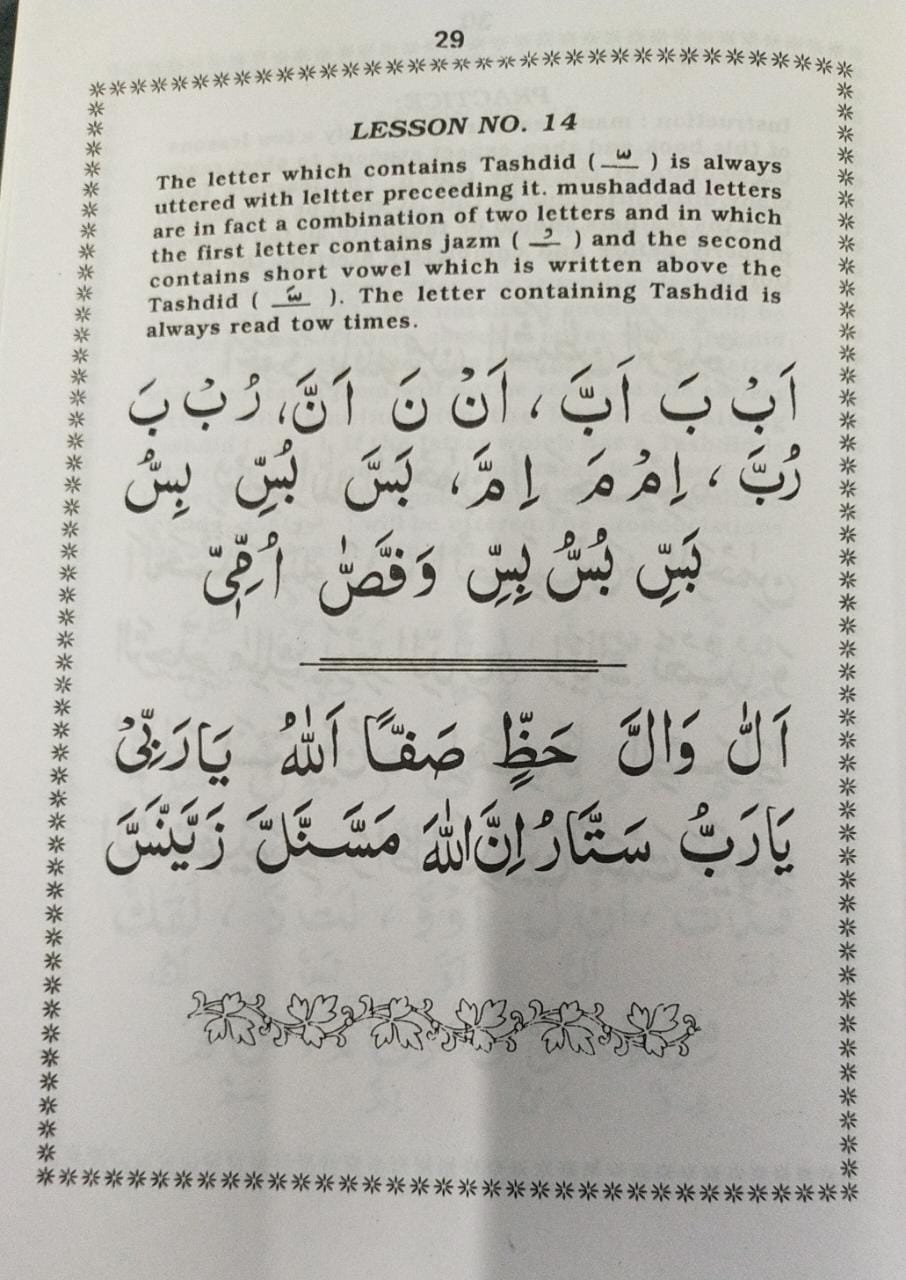 29
LESSON NO. 14
The letter which contains Tashdid ( ـّـ ) is always
uttered with leltter preceeding it. mushaddad letters
are in fact a combination of two letters and in which
the first letter contains jazm ( ـْـ ) and the second
contains short vowel which is written above the
Tashdid ( ـَّـ ). The letter containing Tashdid is
always read tow times.
اَبْ بَ اَبَّ ، اَنْ نَ اَنَّ، رُبْ بَ
رُبَّ ، اِمْ مَ اِمَّ، بَسَّ بُسِّ بِسُّ
بَسِّ بُسُّ بِسِّ وَقَصّٰ اُمِّیّ
اَلّٰ وَالَّ حَظٍّ صَفًّا اَللّٰهُ يَارَبِّیْ
يَارَبُّ سَتَّارُ اِنَّ اللّٰهَ مَسَّنَّلَّ زَيَّنَّسَّ